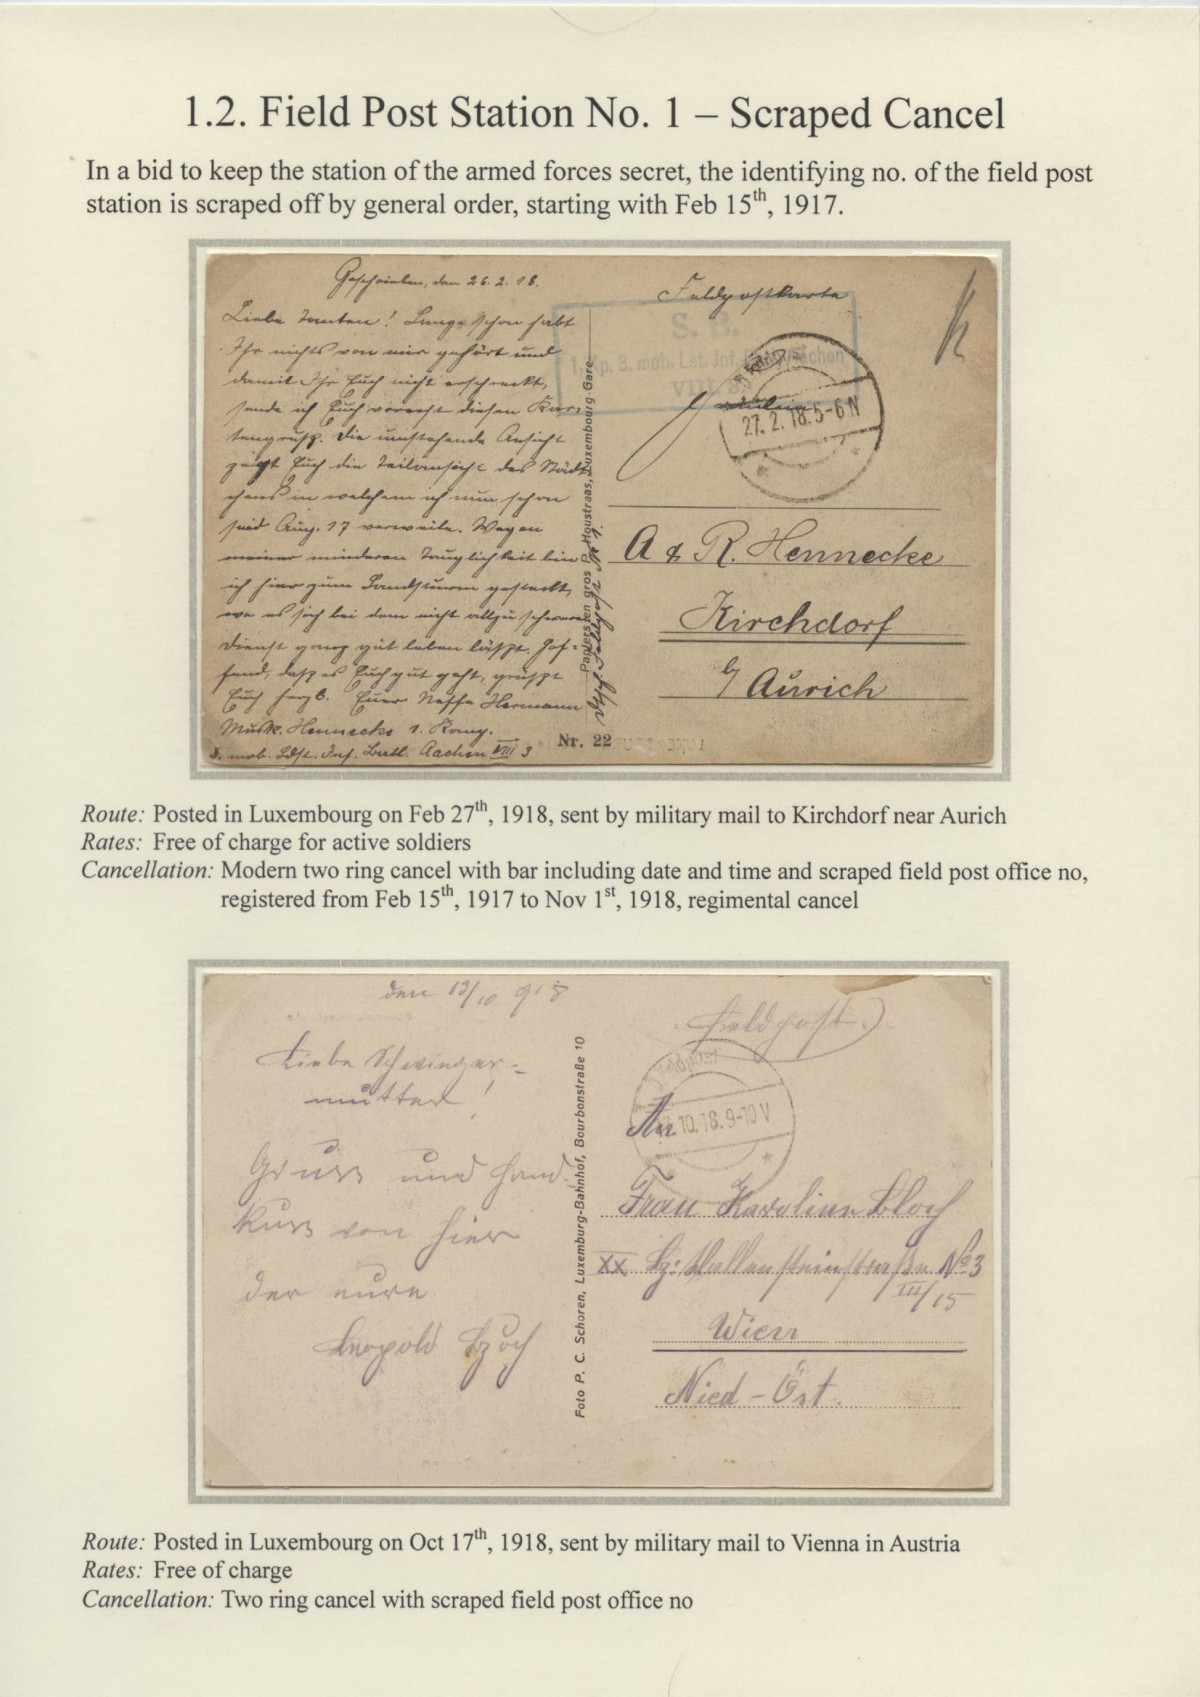 1.2. Field Post Station No. 1 – Scraped Cancel
In a bid to keep the station of the armed forces secret, the identifying no. of the field post
station is scraped off by general order, starting with Feb 15th, 1917.
Geschrieben, den 26. 2. 18.
Liebe Tanten! Lange schon habt
Ihr nichts von mir gehört und
damit Ihr Euch nicht erschreckt,
sende ich Euch vorerst diesen Kar-
tengruß. Die umstehende Ansicht
zeigt Euch die Teilansicht des Städt-
chens in welchem ich nun schon
seid Aug. 17 verweile. Wegen
meiner minderen Tauglichkeit bin
ich hier zum Landsturm gesteckt,
wo es sich bei dem nicht allzu schweren
Dienst ganz gut leben läßt. Hof-
fend, daß es Euch gut geht, grüßt
Euch herzl. Euer Neffe Hermann
Musk. Hennecke 1. Komp.
3. mob. Ldst. Inf. Batl. Aachen VIII 3
Papiers en gros P. Houstraas, Luxembourg-Gare
Nr. 22
Feldpostkarte
S. B.
3. mob. Lst. Inf.
VIII. 3.
27. 2. 18. 5-6 N
A & R. Hennecke
Kirchdorf
b/ Aurich
Route: Posted in Luxembourg on Feb 27th, 1918, sent by military mail to Kirchdorf near Aurich
Rates: Free of charge for active soldiers
Cancellation: Modern two ring cancel with bar including date and time and scraped field post office no,
registered from Feb 15th, 1917 to Nov 1st, 1918, regimental cancel
den 13/10 918
Liebe Schwieger-
mutter!
Gruss und Hand-
kuss von hier
der eure
Leopold
Foto P. C. Schoren, Luxemburg-Bahnhof, Bourbonstraße 10
Feldpost
Feldpost
10. 18. 9-10 V
An
Frau Karoline Bloch
XX Bz: Wallensteinstraße No 3
III/15
Wien
Nied-Öst.
Route: Posted in Luxembourg on Oct 17th, 1918, sent by military mail to Vienna in Austria
Rates: Free of charge
Cancellation: Two ring cancel with scraped field post office no